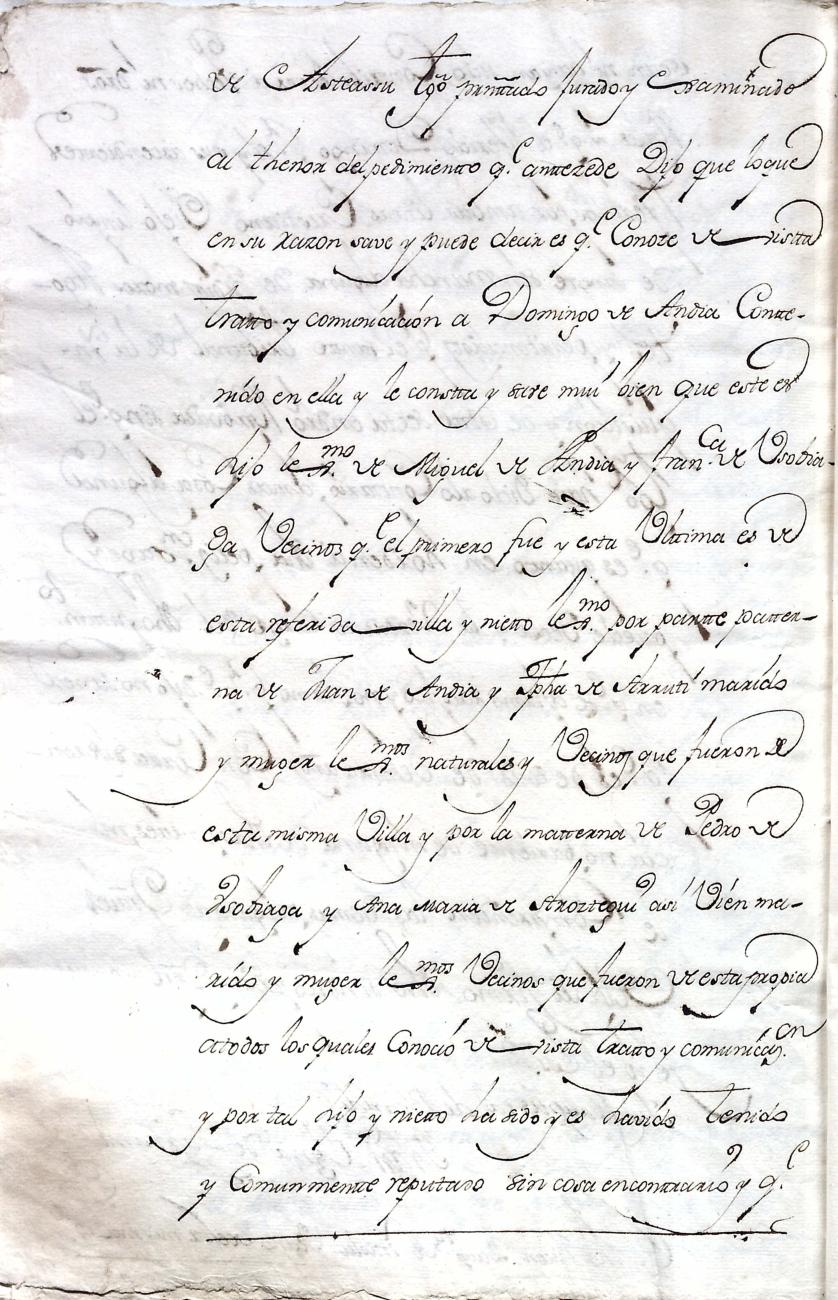 de Asteassu tgo presentado jurado y examinado
al thenor del pedimiento q.e antezede Dijo que lo que
en su razon save y puede decir es q.e Conoze de vistta
tratto y comunicación a Domingo de Andia Contte-
nido en ella y le constta y save mui bien que este es
hijo lex.mo de Miguel de Andia y Fran.ca de Usobia-
ga Vecinos q.e el primero fue y esta Ulttima es de
esta referida villa y nietto lex.mo por partte patter-
na de Juan de Andia y Jpha de Arruti marido
y muger lex.mos naturales y Vecinos que fueron de
esta misma Villa y por la matterna de Pedro de
Usobiaga y Ana Maria de Aroztegui asi vien ma-
rido y muger lex.mos Vecinos que fueron de esta propia
a todos los quales Conoció de vista tratto y comunicaz.on
y por tal hijo y nietto ha sido y es havido tenido
y Comunmentte reputtado sin cosa en conttrario y q.e